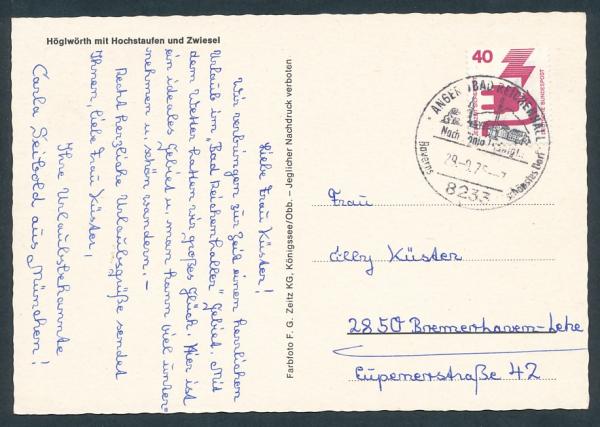 Höglwörth mit Hochstaufen und Zwiesel
Liebe Frau Küster!
Wir verbringen zur Zeit einen herrlichen
Urlaub im "Bad Reichenhaller" Gebiet. Mit
dem Wetter hatten wir großes Glück. Hier ist
ein ideales Gebiet u. man kann viel unter-
nehmen u. schön wandern. –
Recht herzliche Urlaubsgrüße sendet
Ihnen, liebe Frau Küster,
Ihre Urlaubsbekannte
Carla Seibold aus München!
Farbfoto F. G. Zeitz KG, Königssee/Obb. – Jeglicher Nachdruck verboten
40
DEUTSCHE BUNDESPOST
ANGER (BAD REICHENHALL)
Bayerns schönstes Dorf
8233
Frau
Elly Küster
2850 Bremerhaven-Lehe
Eupenerstraße 42